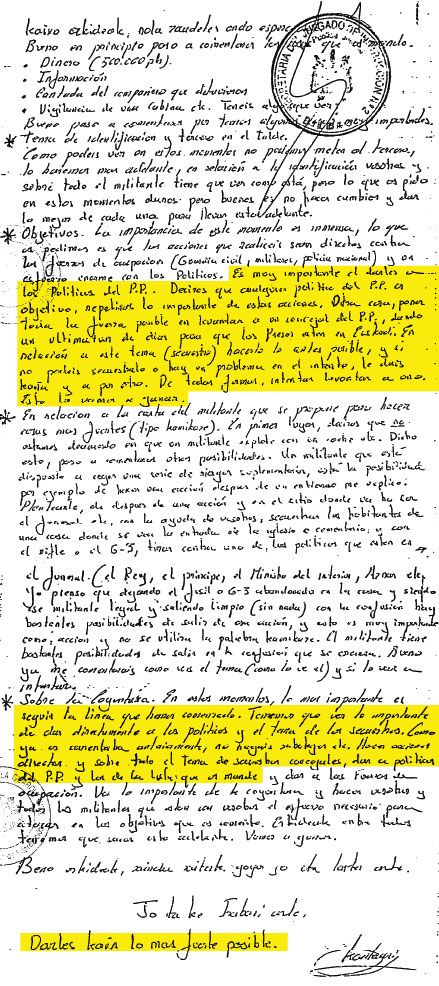 Kaixo askideok, nola zaudete? ondo espero
Bueno en principio paso a comentaros los que os mando.
• Dinero (500.000 pts).
• Información
• Cantada del compañero que detuvieron
• Vigilancia de una cabina etc. Teneis algo que ver?
Bueno paso a comentaros por temas algunas importantes.
* Tema de identificacion y tercero en el talde.
Como podeis ver en estos momentos no podemos meter al tercero,
lo haremos mas adelante, en relación a la identificación vosotros y
sobre todo el militante tiene que ver como está, pero lo que os pido
en estos momentos duros pero buenos es no hacer cambios y dar
lo mejor de cada uno para llevar esto adelante.
* Objetivos. La importancia de este momento es inmensa, lo que
os pedimos es que las acciones que realiceis sean directas contra
las fuerzas de ocupacion (Guardia civil, militares, policia nacional) y un
esfuerzo enorme con los Politicos. Es muy importante el darles a
los Politicos del P.P.. Deciros que cualquier politico del P.P. es
objetivo, repetiros lo importante de estas acciones. Otra cosa, poner
toda la fuerza posible en levantar a un concejal del P.P., dando
un ultimatun de dias para que los Presos esten en Euskadi. En
relación a este tema (secuestro) hacerlo lo antes posible, y si
no podeis secuestrarlo o hay un problema en el intento, le dais
kaña y a por otro. De todas formas, intentar levantar a uno.
Esto lo vamos a ganar.
* En relacion a la carta del militante que se propone para hacer
cosas mas fuertes (tipo kamikaze). En primer lugar, deciros que no
estamos deacuerdo en que un militante explote con un coche etc. Dicho
esto, paso a comentaros otras posibilidades. Un militante que está
dispuesto a coger una serie de riesgos suplementarios, está la posibilidad
por ejemplo de hacer una acción despues de un entierro me explico:
Plantearle, de despues de una acción y en el sitio donde va ha ser
el funeral etc, con la ayuda de vosotros, secuestrar los habitantes de
una casa donde se vea la entrada de la iglesia o cementerio, y con
el rifle o el G-3, tirar contra uno de los politicos que esten en
el funeral. (el Rey, el principe, el Ministro del interior, Aznar etc.
Yo pienso que dejando el fusil o G-3 abandonado en la casa y siendo
ese militante legal y saliendo limpio (sin nada) con la confusión hay
bastantes posibilidades de salir de esa acción, y esto es muy importante
como acción y no se utiliza la palabra kamikaze. El militante tiene
bastantes posibilidades de salir en la confusion que se crearía. Bueno
ya me comentarais como veis el tema (como lo ve el) y si lo vais a
intentar.
* Sobre la Coyuntura. En estos momentos, lo mas importante es
seguir la linea que hemos comenzado. Tenemos que ver lo importante
de dar diréctamente a los politicos y el tema de los secuestros. Como
ya os comentaba anteriormente, no hagais sabotajes etc. Hacer acciones
directas y sobre todo el tema de secuestrar concejales, dar a politicos
del P.P. y los de la lista que os mande y dar a las Fuerzas de
ocupación. Ver lo importante de la coyuntura y hacer vosotros y
todos los militantes que estan con vosotros el esfuerzo necesario para
actuar en los objetivos que os comento. Askideak entre todos
tenemos que sacar esto adelante. Vamos a ganar.
Beno askideak, zaindu zaitezte gogor jo eta laster arte.
Jo ta ke Irabazi arte.
Darles kaña lo mas fuerte posible.
Kantauri